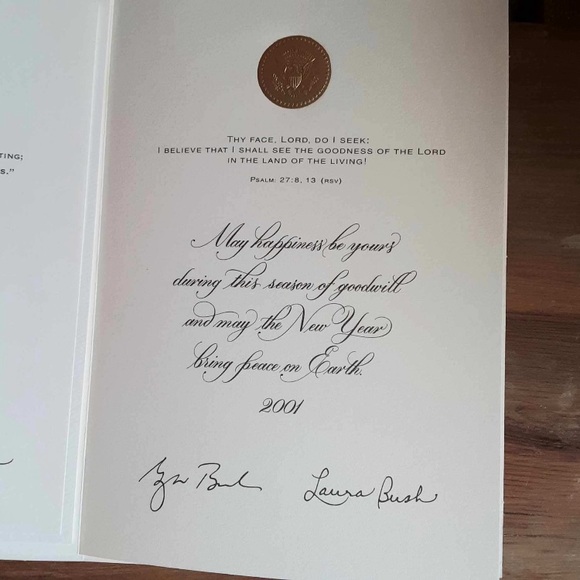 TING;
S."
THY FACE, LORD, DO I SEEK:
I BELIEVE THAT I SHALL SEE THE GOODNESS OF THE LORD
IN THE LAND OF THE LIVING!
PSALM: 27:8, 13 (RSV)
May happiness be yours
during this season of goodwill
and may the New Year
bring peace on Earth.
2001
Laura Bush